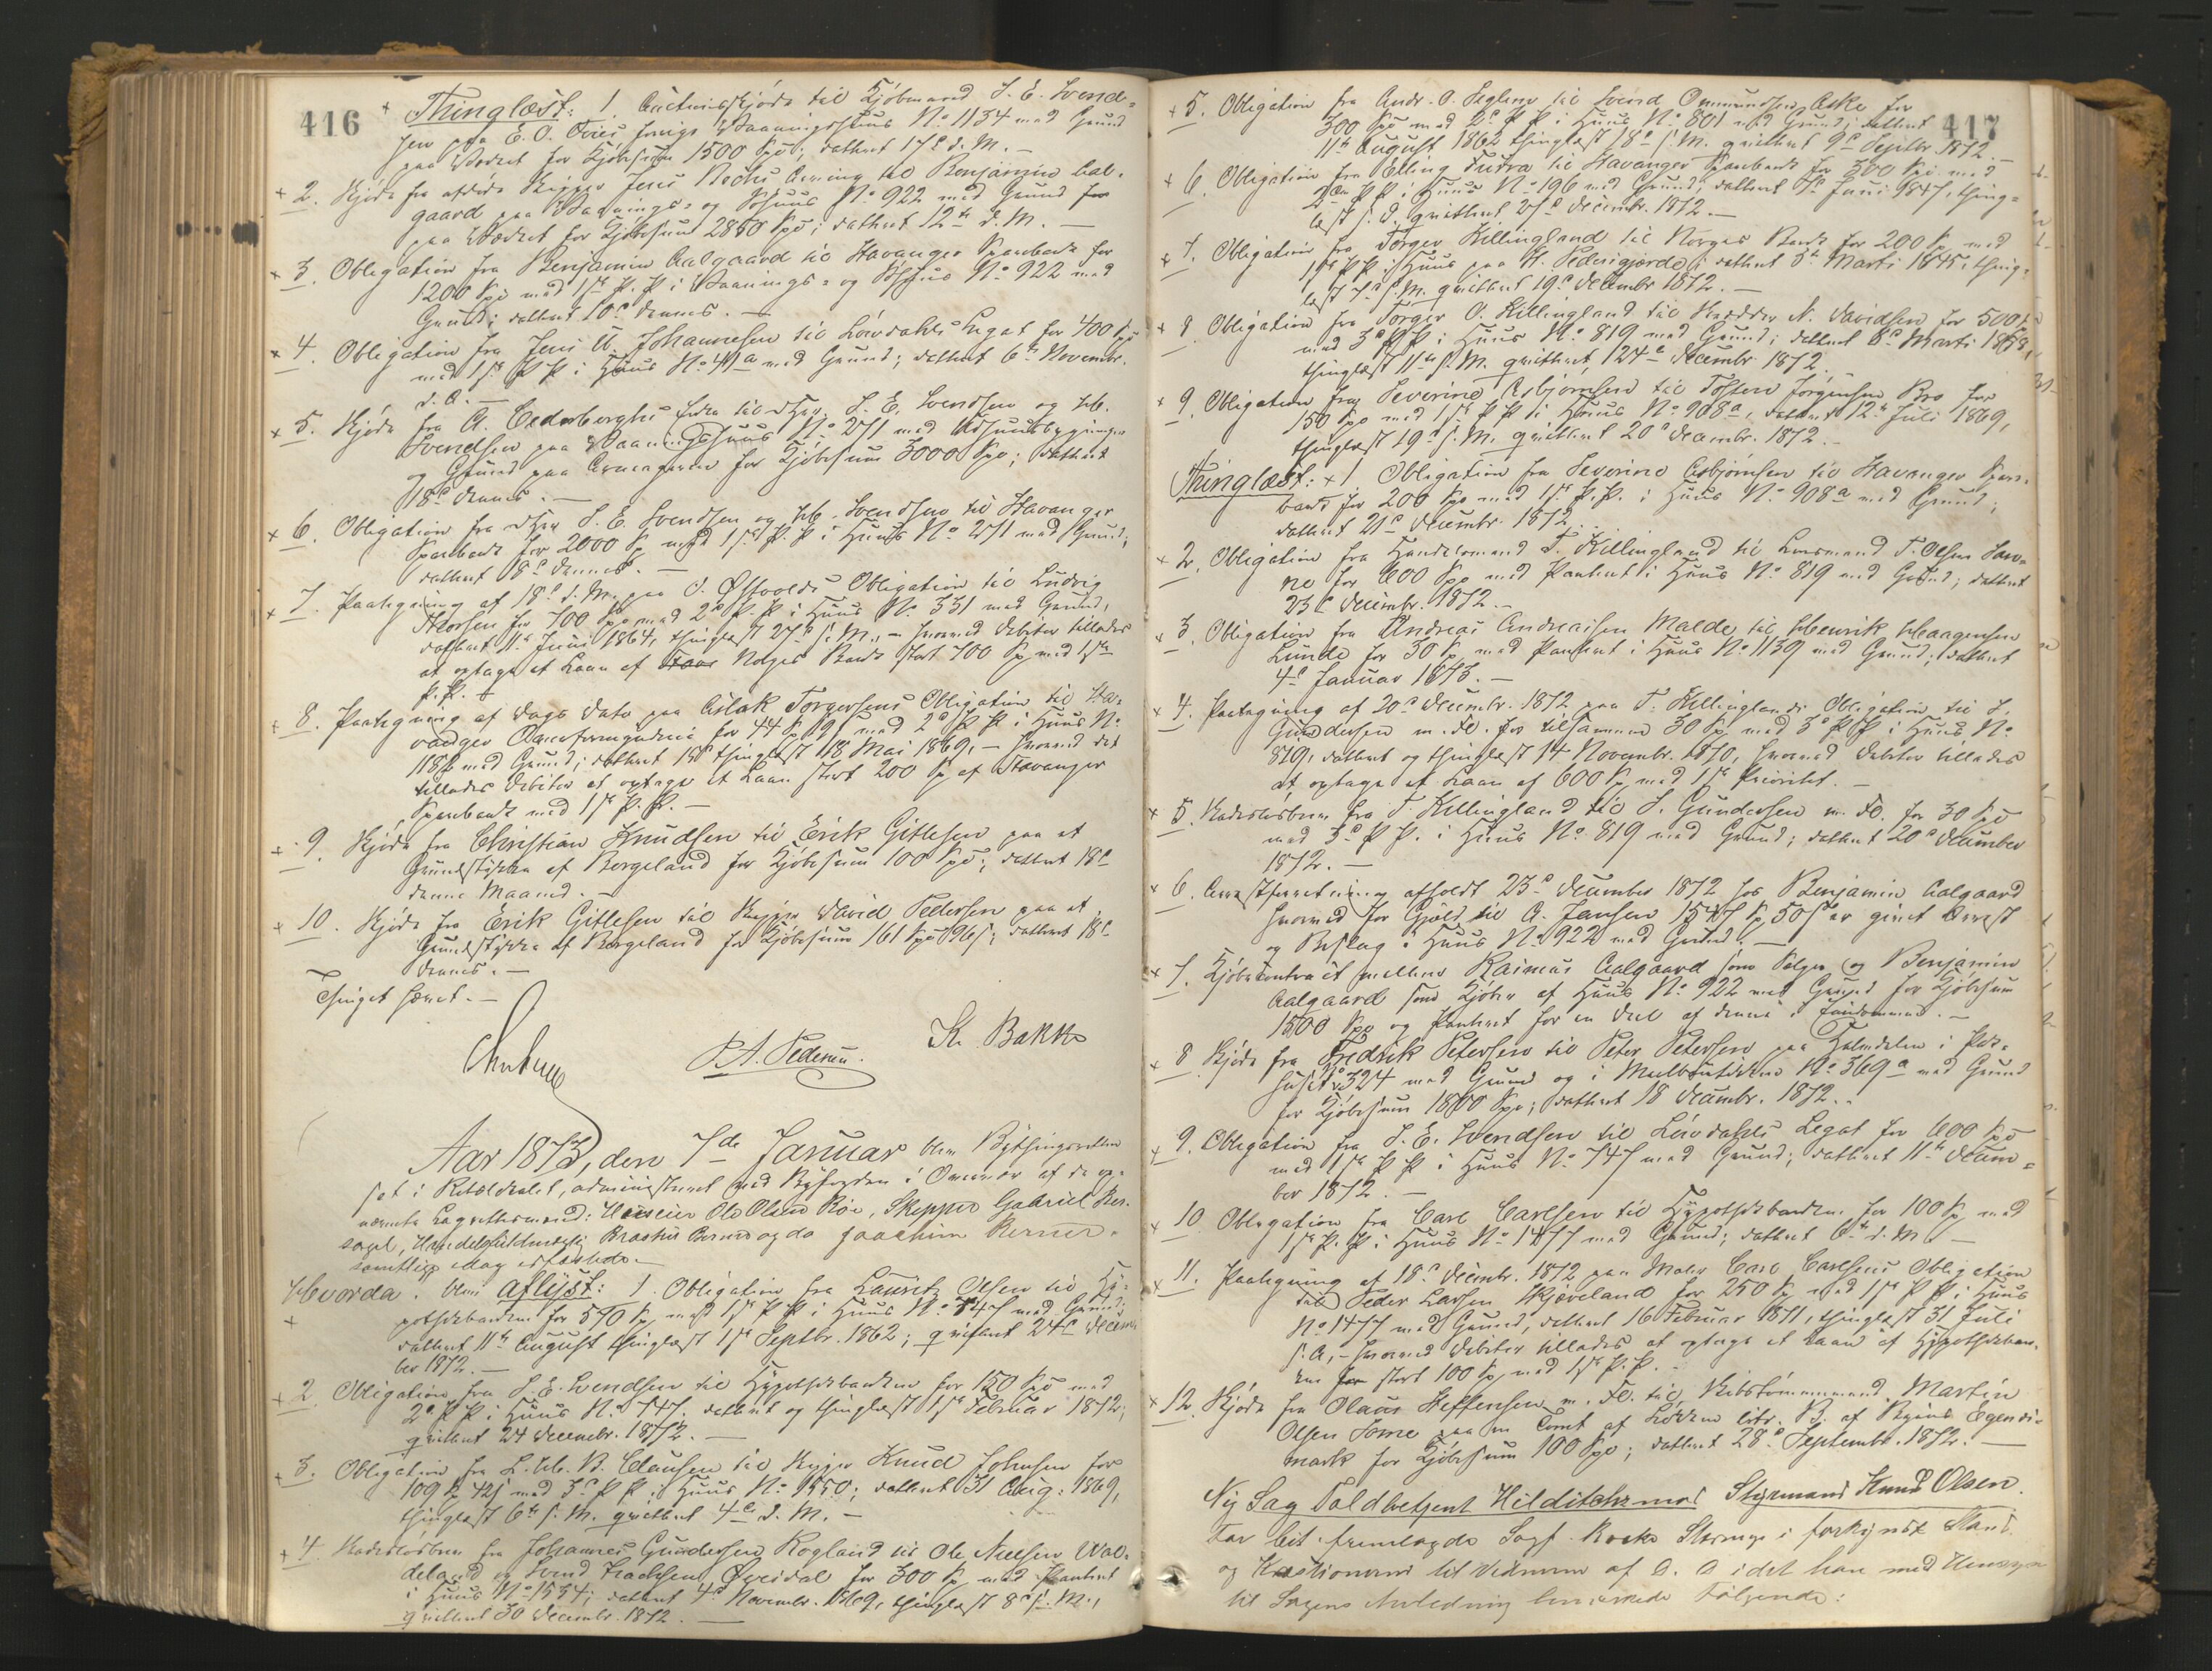 416
Thinglæst: 1. Auctionsskjøde til Kjøbmand S. E. Svend=
sen paa E. O. Tveis forrige Vaaningshuus No 1134 med Grund
paa Verket for Kjøbesum 1500 Spd; dateret 17de d. M. —
2. Skjøde fra afdøde Skipper Jens Arving til Benjamin Aal-
gaard paa Vaanings- og Søhuus No 922 med Grund
paa Verket for Kjøbesum 2850 Spd; dateret 12te d. M. —
3. Obligation fra Benjamin Aalgaard til Stavanger Sparebank for
1200 Spd med 1ste P. P. i Vaanings- og Søhuus No 922 med
Grund; dateret 20de dennes. —
4. Obligation fra Jens W. Johannesen til Løvdahls Legat for 400 Spd
med 1ste P P i Huus No 41a med Grund; dateret 6te Novembr.
d. A. —
5. Skjøde fra A. Cederberghs Enke til S. E. Svendsen og
Svendsen paa Vaaningshuus No 271 med
og Grund paa for Kjøbesum 3000 Spd; dateret
18de dennes. —
6. Obligation fra S. E. Svendsen og Svendsen til Stavanger
Sparebank for 2000 Sp med 1ste P. P. i Huus No 271 med Grund;
dateret 18de dennes. —
7. Paategning af 18de d. M. paa Østvolds Obligation til Ludvig
for 700 Spd med 2den P. P. i Huus No 331 med Grund,
dateret 11te Juni 1864, thinglæst 27de s. M., — hvorved Debitor tillades
at optage et Laan af Norges Bank stort 700 Sp med 1ste
P. P. —
8. Paategning af Dags Dato paa Aslak Torgersens Obligation til Sta-
vanger for 44 Sp med 2den P P i Huus No
118b med Grund; dateret thinglæst 18 Mai 1869, — hvorved det
tillades Debitor at optage et Laan stort 200 Sp af Stavanger
Sparebank med 1ste P. P. —
9. Skjøde fra Christian Knudsen til Erik Gitlesen paa et
Grundstykke af Bergeland for Kjøbesum 100 Spd; dateret 18de
denne Maaned. —
10. Skjøde fra Erik Gitlesen til Skipper David Pedersen paa et
Grundstykke af Bergeland for Kjøbesum 161 Spd 96 s; dateret 18de
dennes. —
Thinget hævet. —
P. A. Pedersen. K. Bakke
Aar 1873, den 7de Januar blev Bythingsretten
sat i Retslokalet, administreret ved Byfogden i Overvær af de op-
nævnte Lagrettesmænd: Huseier Ole Olsen Röe, Skipper Gabriel Ber-
sagel, Handelsfuldmægtig Berner og do Joachim Berner.
samtlige
Hvorda. blev Aflyst: 1. Obligation fra Lauritz Olsen til Hy-
pothekbanken for 570 Sp med 1ste P P i Huus No 747 med Grund;
dateret 11te August thinglæst 1ste Septbr. 1862; qvitteret 24de Decem-
ber 1872. —
2. Obligation fra S. E. Svendsen til Hypothekbanken for 150 Spd med
2den P P i Huus No 747; dateret og thinglæst 1ste Februar 1872;
qvitteret 24 Decembr. 1872. —
3. Obligation fra L. W. B. Clausen til Skipper Knud Johnsen for
109 Sp 42 s med 3de P P i Huus No 1550; dateret 31 Aug. 1869,
thinglæst 6te s. M. qvitteret 4de d. M. —
4. Skadesløsbrev fra Johannes Gundersen Rogland til Ole Nielsen Wal-
deland og Svend Øvrsdal for 300 Sp med Panteret
i Huus No 1534; dateret 4de Novembr. 1869, thinglæst 8de s. M.,
qvitteret 30 Decembr. 1872. —
417
5. Obligation fra Andr. O. Seglem til Svend Ommundsen Aske for
300 Spd med 2den P P i Huus No 801 med Grund; dateret
11te August 1862 thinglæst 18de s. M. qvitteret 9de Septbr. 1872. —
6. Obligation fra Elling Futra til Stavanger Sparebank for 300 Spd med
P P i Huus No 196 med Grund; dateret Juni 1847, thing-
læst s. D. qvitteret 27de Decembr. 1872. —
7. Obligation fra Torger Killingland til Norges Bank for 200 Sp med
1ste P P i Huus paa St. Pedersgjerde; dateret 5te Marts 1845, thing-
læst 7de s. M. qvitteret 19de Decembr 1872. —
8. Obligation fra Torger O. Killingland til N. Davidsen for 500
med 3de P P i Huus No 819 med Grund; dateret 8de Marts
thinglæst 11te s. M. qvitteret 24de Decembr 1872.
9. Obligation fra Severine Asbjørnsen til Tosten Jørgensen Bro for
150 Spd med 1ste P P i Huus No 908a, dateret 12te Juli 1869,
thinglæst 19de s. M. qvitteret 20de Decembr. 1872. —
Thinglæst: 1. Obligation fra Severine Asbjørnsen til Stavanger Spare-
bank for 200 Spd med 1ste P. P. i Huus No 908a med Grund;
dateret 21de Decembr. 1872.
2. Obligation fra Handelsmand T. Killingland til Lensmand T. Olsen
for 600 Spd med Panteret i Huus No 819 med Grund; dateret
23de Decembr. 1872. —
3. Obligation fra Andreas Andreassen Malde til Henrik Haagensen
Lunde for 30 Sp med Panteret i Huus No 1139 med Grund; dateret
4de Januar 1873. —
4. Paategning af 20de Decembr. 1872 paa T. Killinglands Obligation til S.
Gundersen m. Fl. for tilsammen 30 Sp med 3de P P i Huus No
819, dateret og thinglæst 14 Novembr. 1870, hvorved Debitor tillades
at optage et Laan af 600 Sp med 1ste Prioritet. —
5. Skadesløsbrev fra T. Killingland til S. Gundersen m. Fl. for 30 Spd
med 3de P P. i Huus No 819 med Grund; dateret 20de December
1872. —
6. Arrestforretning afholdt 23de December 1872 hos Benjamin Aalgaard
hvorved for Gjæld til A. Jansen 1547 Sp 50 s er givet Arrest
og Beslag i Huus No 922 med Grund. —
7. Kjøbekontract mellem Rasmus Aalgaard som Sælger og Benjamin
Aalgaard som Kjøber af Huus No 922 med Grund for Kjøbesum
1500 Spd og Panteret for en Deel af denne i Eiendommen. —
8. Skjøde fra Fredrik Petersen til Peter Petersen paa Halvdelen i Pak-
huset No 324 med Grund og i No 369a med Grund
for Kjøbesum 1800 Spd; dateret 18 Decembr. 1872. —
9. Obligation fra S. E. Svendsen til Løvdahls Legat for 600 Spd
med 1ste P P i Huus No 747 med Grund; dateret 11te Decem-
ber 1872. —
10. Obligation fra Carl Carlsen til Hypothekbanken for 100 Sp med
1ste P. P. i Huus No 1477 med Grund; dateret 6te d. M. —
11. Paategning af 18de Decembr. 1872 paa Maler Carl Carlsens Obligation
til Peder Larsen Skjæveland for 250 Sp med 1ste P P i Huus
No 1477 med Grund, dateret 16 Februar 1871, thinglæst 31 Juli
s. A., — hvorved Debitor tillades at optage et Laan af Hypothekban-
ken stort 100 Sp med 1ste P. P. —
12. Skjøde fra Olaus Steffensen m. Fl. til Skibstømmermand Martin
Olsen Torne paa en Tomt af Løkken litr. B. af Byens Egendi-
mark for Kjøbesum 100 Spd; dateret 28de Septembr. 1872. —
Ny Sag Toldbetjent Hilditch mod Styrmand Knud Olsen.
For Cit. fremlagde Sagf. Stævning i forkyndt Stand
og til Vidnerne af D. D idet han med Hensyn
til Sagens Anledning bemærkede Følgende: